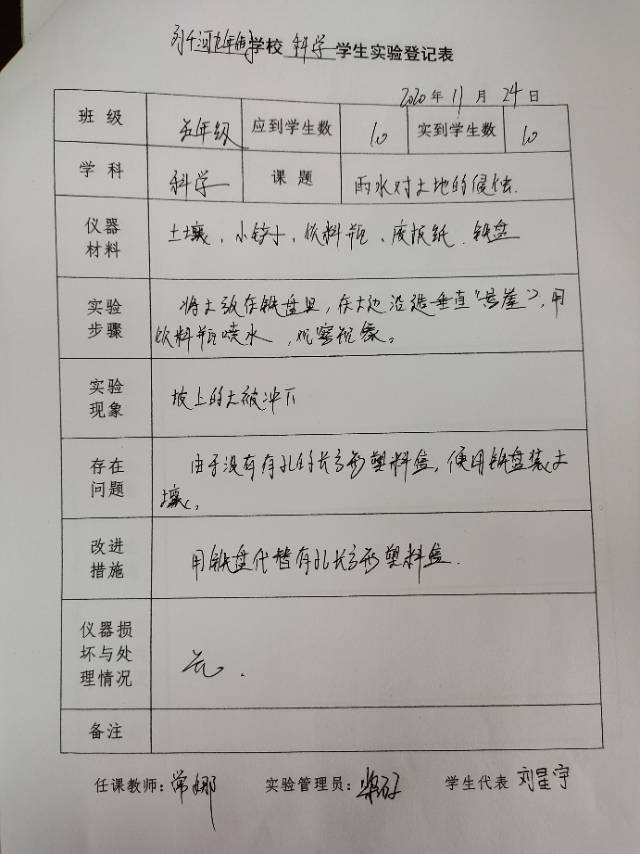 学校 科学 学生实验登记表
2020年11月24日
班级 五年级 应到学生数 10 实到学生数 10
学科 科学 课题 雨水对土地的侵蚀.
仪器材料 土壤、小铲子、饮料瓶、废报纸、铁盘
实验步骤 将土放在铁盘里,在土边沿造垂直“悬崖”,用
饮料瓶喷水,观察现象。
实验现象 坡上的土被冲下
存在问题 由于没有有孔的长方形塑料盒,使用铁盘装土
壤。
改进措施 用铁盘代替有孔长方形塑料盒.
仪器损坏与处理情况 无.
备注
任课教师:常娜 实验管理员: 学生代表 刘星宇